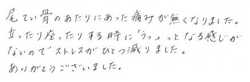 尾てい骨のあたりにあった痛みが無くなりました。
立ったり座ったりする時に「うっ」っとなる感じが
ないのでストレスがひとつ減りました。
ありがとうございました。